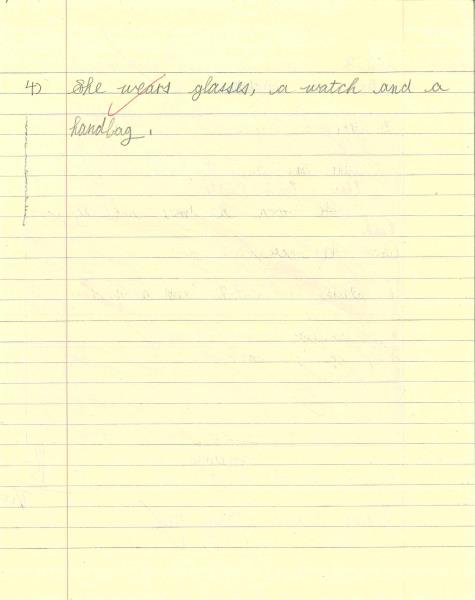 4) She wears glasses, a watch and a
handbag.